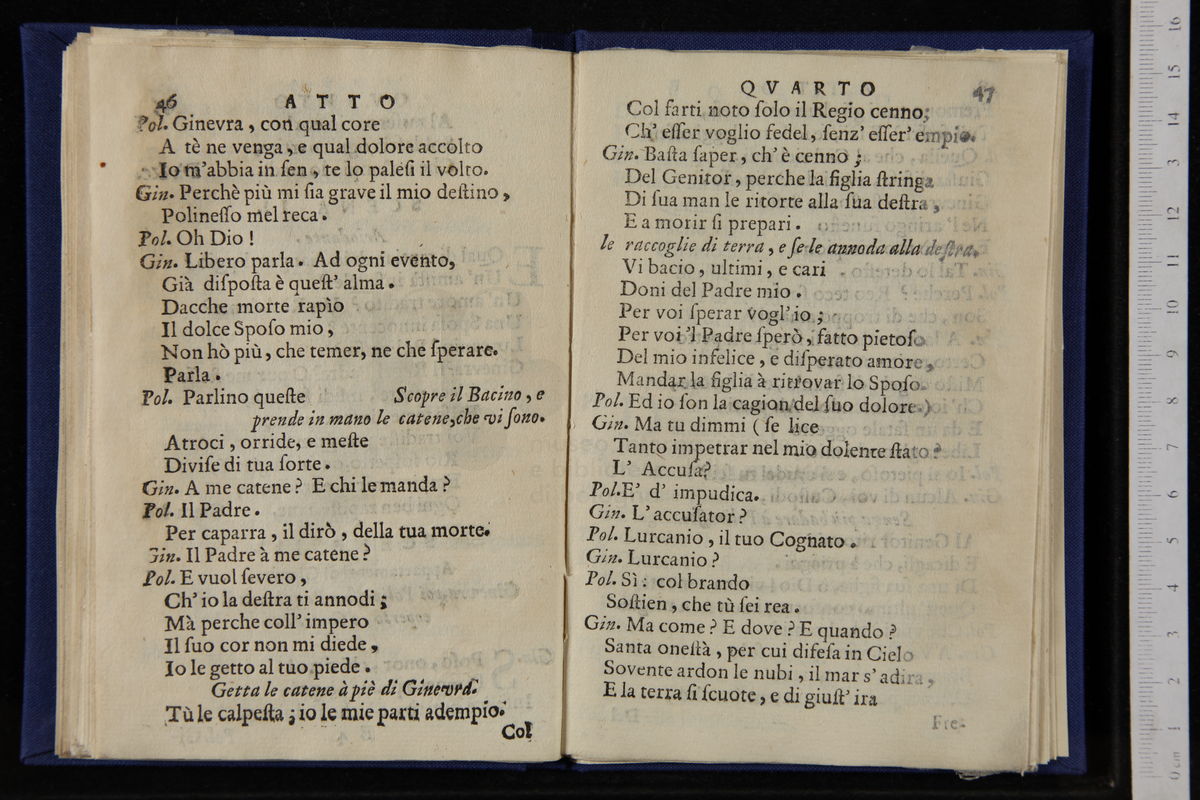 46 ATTO
Pol. Ginevra, con qual core
A tè ne venga, e qual dolore accolto
Io m'abbia in ſen, te lo paleſi il volto.
Gin. Perchè più mi ſia grave il mio deſtino,
Polineſſo mel reca.
Pol. Oh Dio!
Gin. Libero parla. Ad ogni evento,
Già diſpoſta è queſt' alma.
Dacche morte rapìo
Il dolce Spoſo mio,
Non hò più, che temer, ne che ſperare.
Parla.
Pol. Parlino queſte Scopre il Bacino, e
prende in mano le catene, che vi ſono.
Atroci, orride, e meſte
Diviſe di tua ſorte.
Gin. A me catene? E chi le manda?
Pol. Il Padre.
Per caparra, il dirò, della tua morte.
Gin. Il Padre à me catene?
Pol. E vuol ſevero,
Ch' io la deſtra ti annodi;
Mà perche coll' impero
Il ſuo cor non mi diede,
Io le getto al tuo piede.
Getta le catene à piè di Ginevra.
Tù le calpeſta; io le mie parti adempio.
Col
QVARTO 47
Col farti noto ſolo il Regio cenno;
Ch' eſſer voglio fedel, ſenz' eſſer' empio.
Gin. Baſta ſaper, ch' è cenno;
Del Genitor, perche la figlia ſtringa
Di ſua man le ritorte alla ſua deſtra,
E a morir ſi prepari.
le raccoglie di terra, e ſe le annoda alla deſtra.
Vi bacio, ultimi, e cari
Doni del Padre mio.
Per voi ſperar vogl' io;
Per voi 'l Padre ſperò, fatto pietoſo
Del mio infelice, e diſperato amore,
Mandar la figlia à ritrovar lo Spoſo.
Pol. Ed io ſon la cagion del ſuo dolore.)
Gin. Ma tu dimmi (ſe lice
Tanto impetrar nel mio dolente ſtato?
L' Accuſa?
Pol. E' d' impudica.
Gin. L' accuſator?
Pol. Lurcanio, il tuo Cognato.
Gin. Lurcanio?
Pol. Sì: col brando
Soſtien, che tù ſei rea.
Gin. Ma come? E dove? E quando?
Santa oneſtà, per cui difeſa in Cielo
Sovente ardon le nubi, il mar s' adira,
E la terra ſi ſcuote, e di giuſt' ira
Fre-
16
15
14
13
12
11
10
9
8
7
6
5
4
3
2
1
0 cm